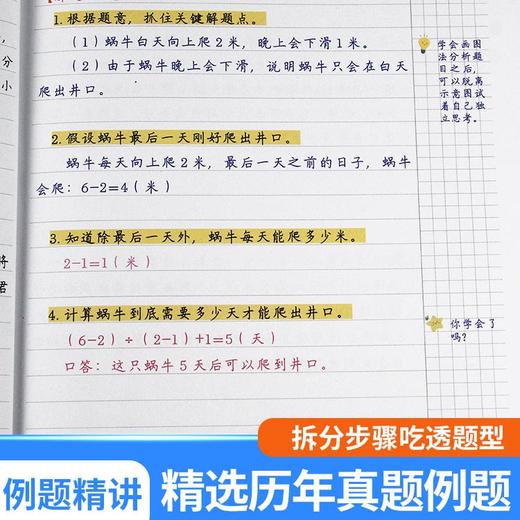 1.根据题意，抓住关键解题点。
（1）蜗牛白天向上爬2米，晚上会下滑1米。
（2）由于蜗牛晚上会下滑，说明蜗牛只会在白天
爬出井口。
2.假设蜗牛最后一天刚好爬出井口。
蜗牛每天向上爬2米，最后一天之前的日子，蜗牛
会爬：6-2=4（米）
3.知道除最后一天外，蜗牛每天能爬多少米。
2-1=1（米）
4.计算蜗牛到底需要多少天才能爬出井口。
（6-2）÷（2-1）+1=5（天）
口答：这只蜗牛5天后可以爬到井口。
学会画图
法分析题
目之后，
可以脱离
示意图试
着自己独
立思考。
你学会了
吗？
分
小
将
君
拆分步骤吃透题型
例题精讲
精选历年真题例题